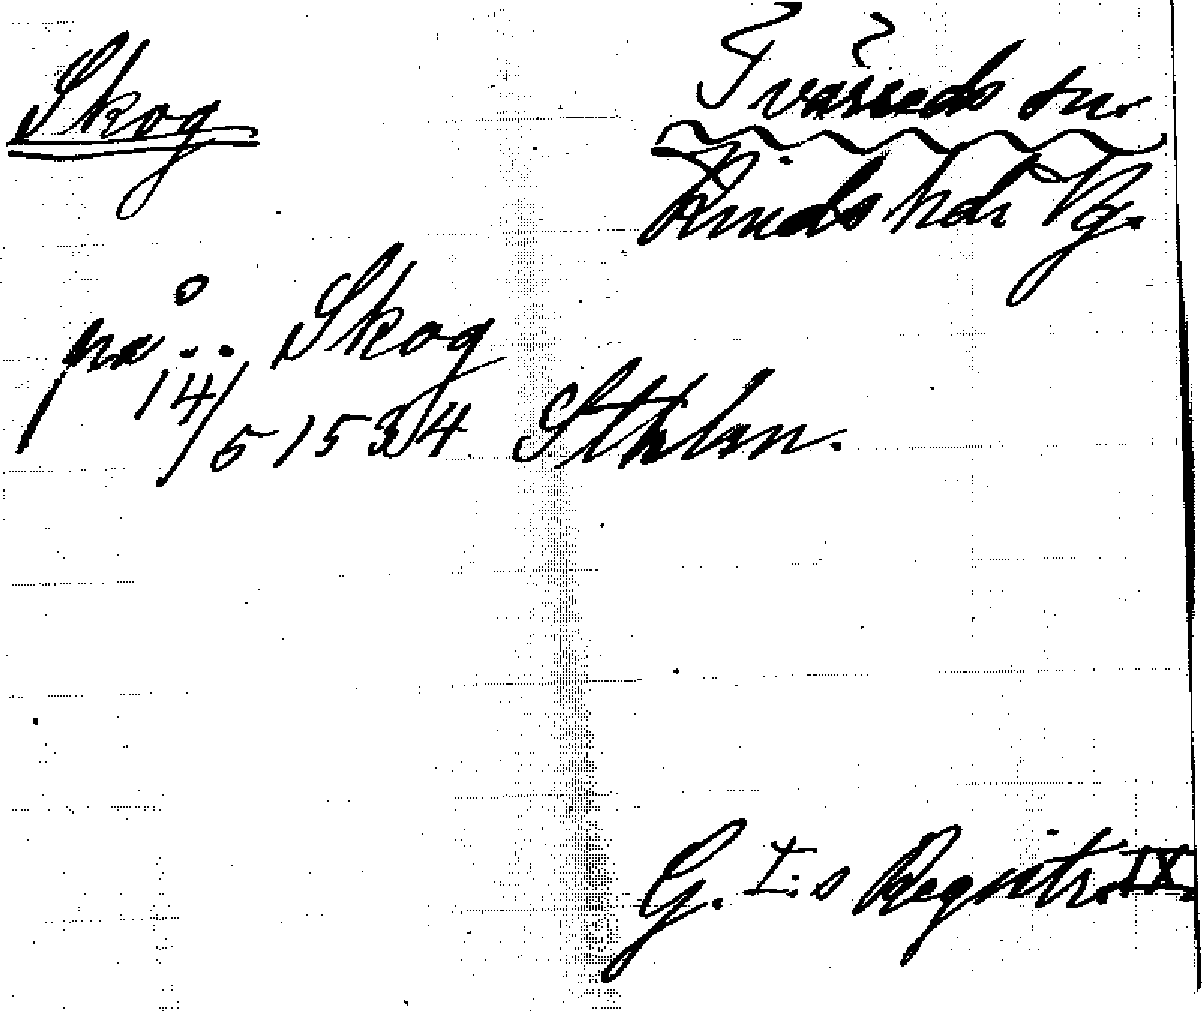 Skog
Tvärreds sn.
Kinds hd. Vg.
på .. Skog
14/5 1534 Sthlm.
G. I:s Registr. IX.